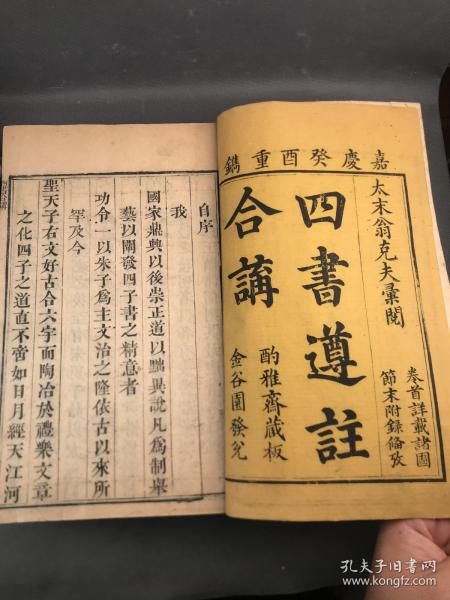 嘉慶癸酉重鐫
太末翁克夫彙閱
卷首詳載諸圖
節末附錄備攷
四書遵註
合講
酌雅齋藏板
金谷園發兌
自序
我
國家鼎興以後崇正道以黜異說凡為制舉
藝以闡發四子書之精意者
功令一以朱子為主文治之隆依古以來所
罕及今
聖天子右文好古合六宇而陶冶於禮樂文章
之化四子之道直不啻如日月經天江河
孔夫子旧书网
www.kongfz.com